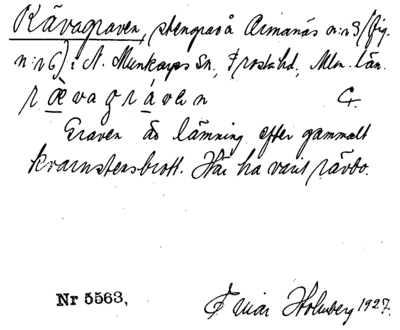 Rävagraven, stengrav å Armanäs n:r 3 (fig.
n:r 6) i A. Munkarps Sn, Frosta hd, Mlm. län.
rævagrávən G.
Graven är lämning efter gammalt
kvarnstensbrott. Här ha varit rävbo.
Nr 5563,
Holmberg 1927.